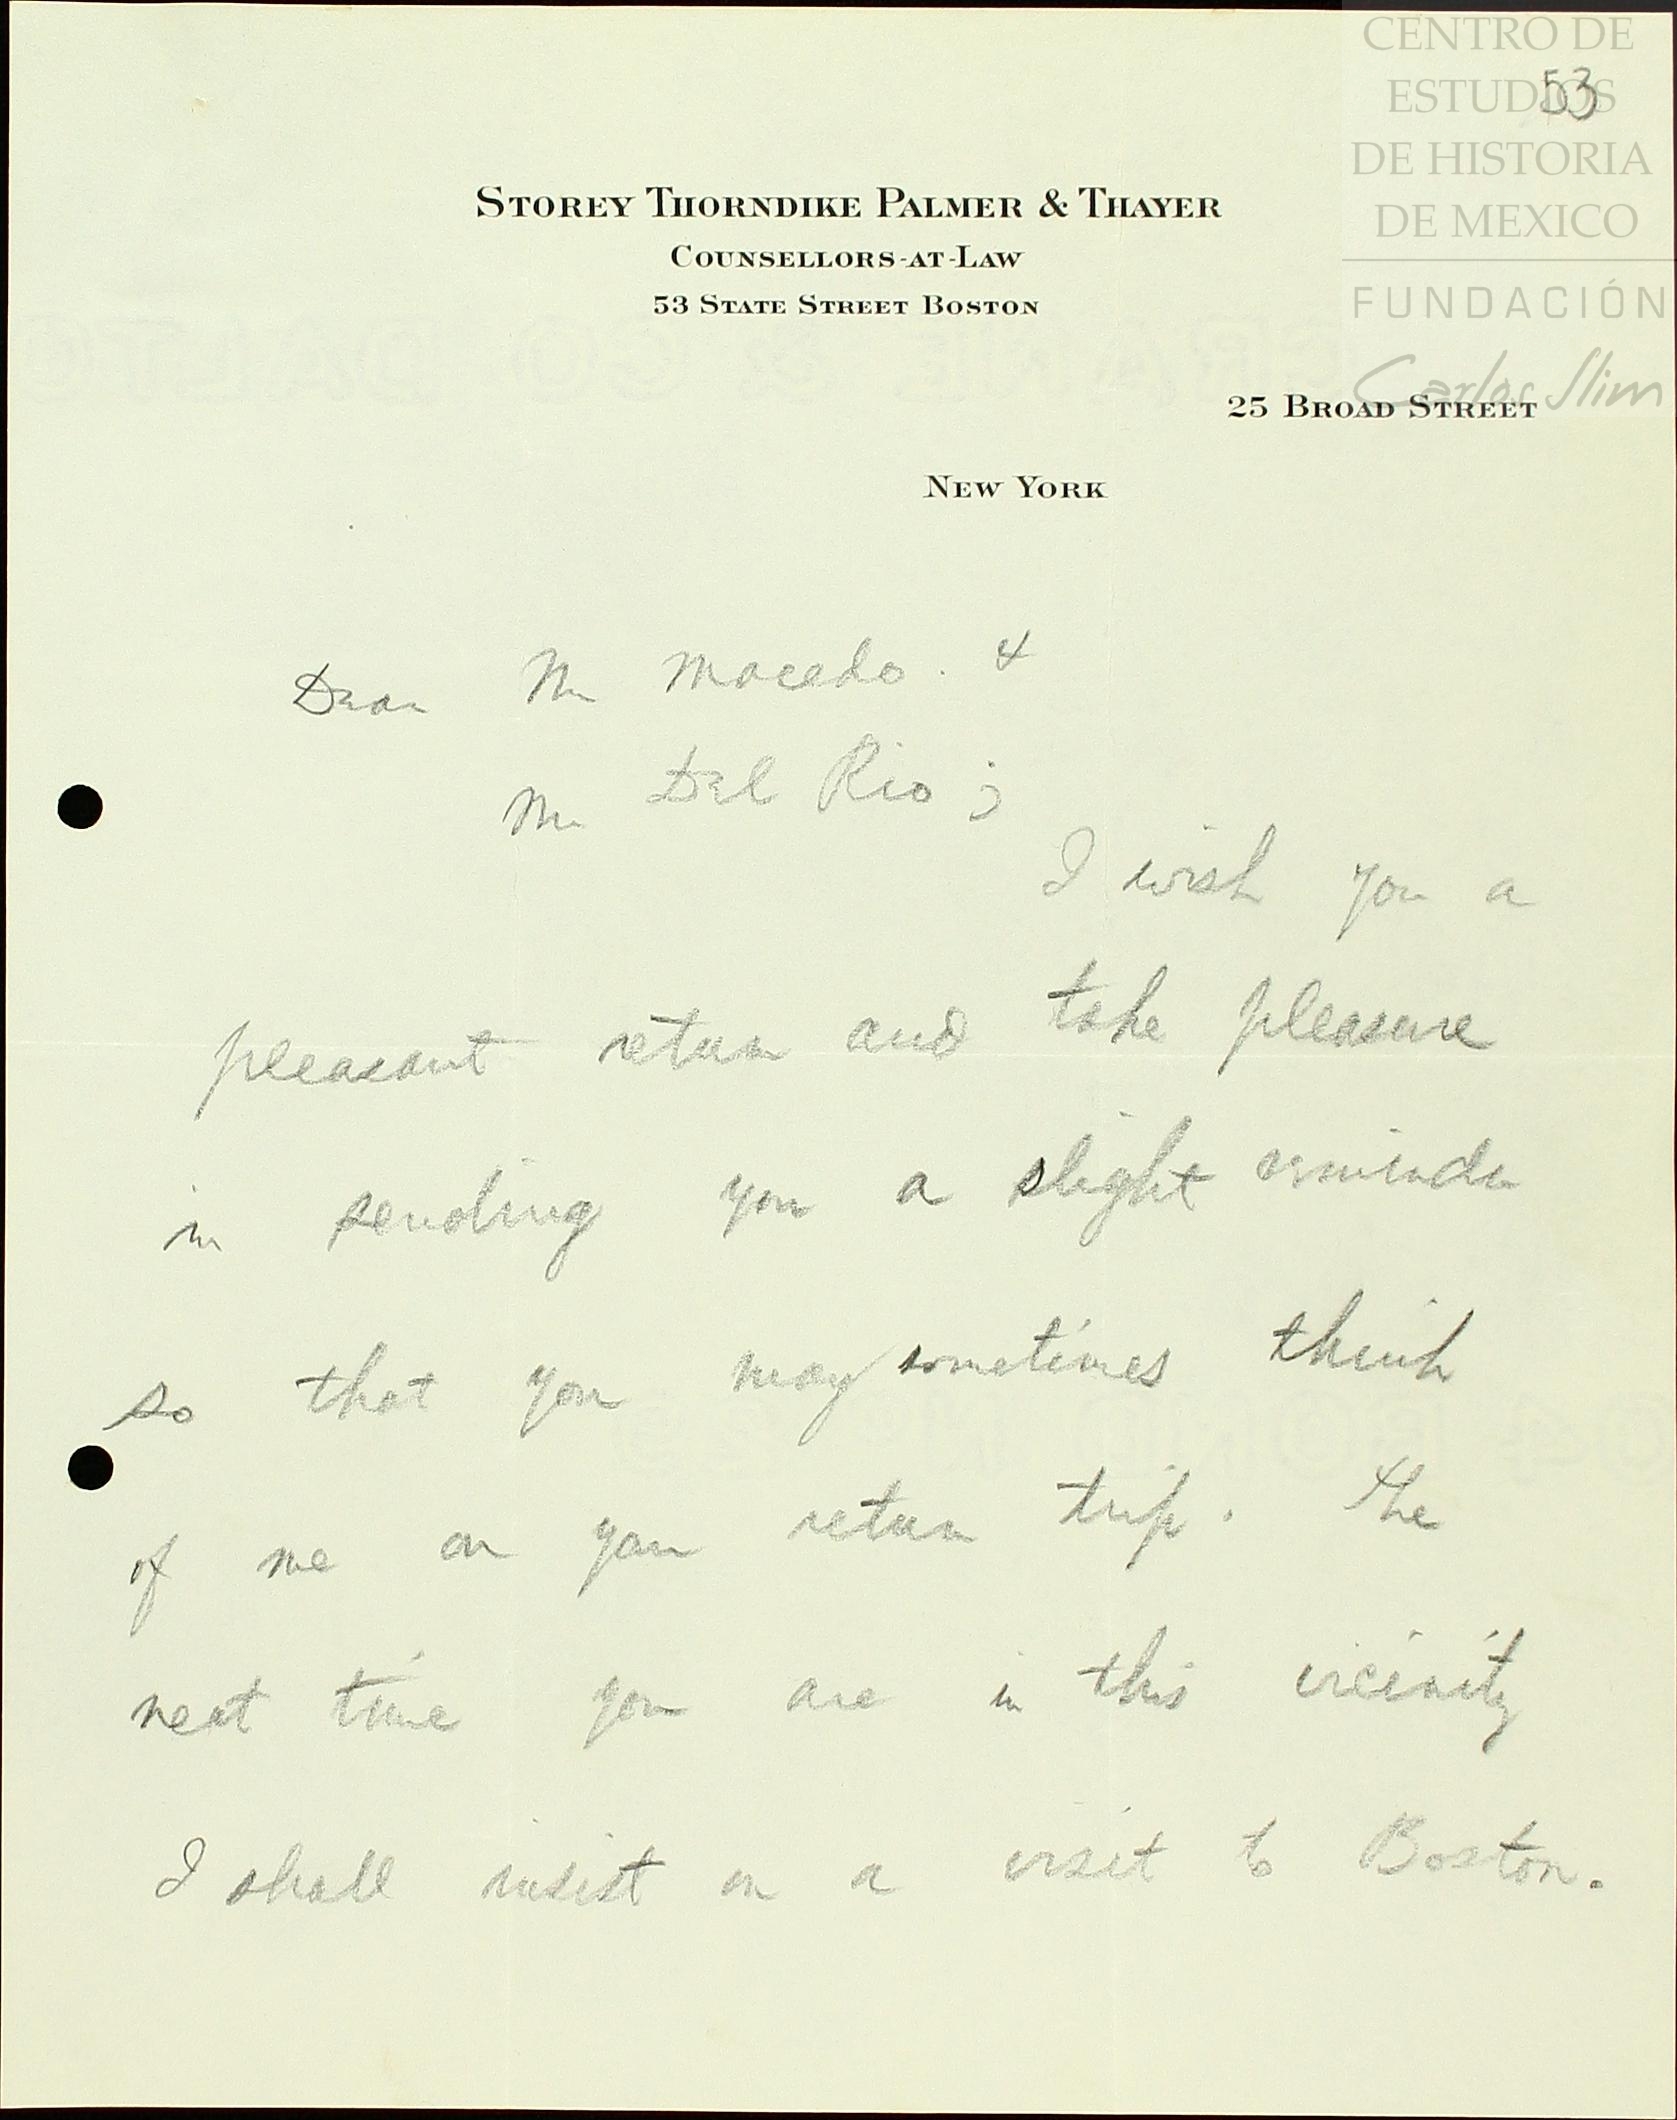 CENTRO DE
ESTUDIOS
53
DE HISTORIA
DE MEXICO
FUNDACIÓN
Carlos Slim
STOREY THORNDIKE PALMER & THAYER
COUNSELLORS-AT-LAW
53 STATE STREET BOSTON
25 BROAD STREET
NEW YORK
Dear Mr Macedo. &
Mr Del Rio;
I wish you a
pleasant return and take pleasure
in sending you a slight reminder
so that you may sometimes think
of me on your return trip. The
next time you are in this vicinity
I shall insist on a visit to Boston.